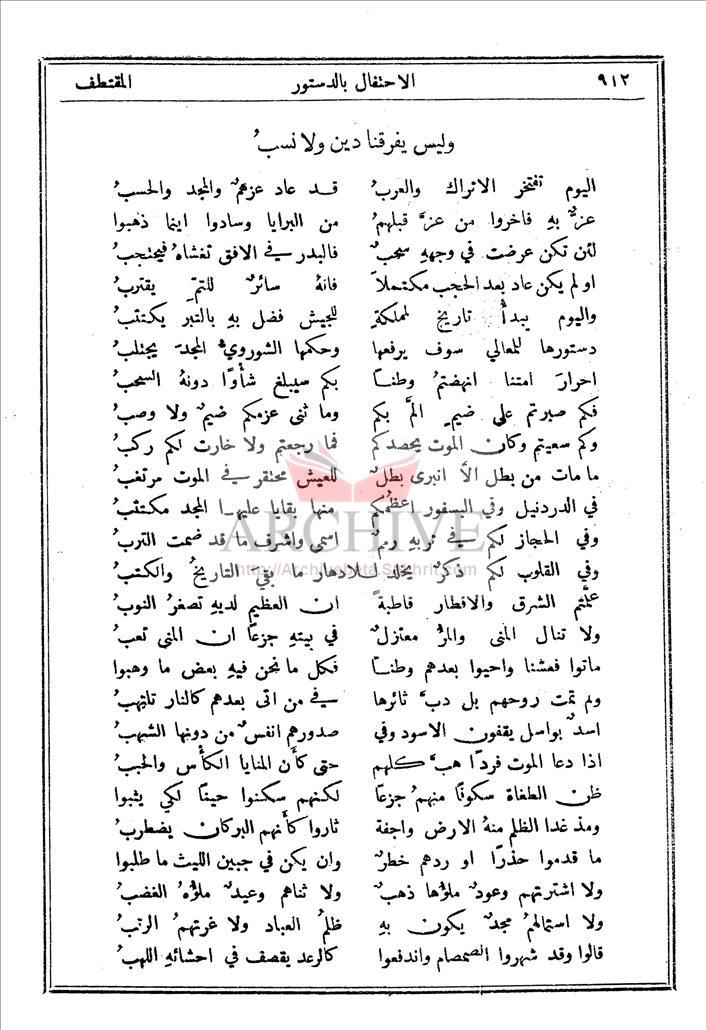 ٩١٢ الاحتفال بالدستور المقتطف
وليس يفرقنا دين ولا نسبُ
اليوم تفتخر الاتراك والعربُ قد عاد عزهمُ والمجد والحسبُ
عزٌّ بهِ فاخروا من عزَّ قبلهمُ من البرايا وسادوا اينما ذهبوا
لئن تكن عرضت في وجههِ سحبٌ فالبدر في الافق تغشاهُ فيحتجبُ
او لم يكن عاد بعد الحجب مكتملاً فانهُ سائرٌ للتمّ يقتربُ
واليوم يبدأُ تاريخ لمملكةٍ للجيش فضل بهِ بالتبر يكتتبُ
دستورها للمعالي سوف يرفعها وحكمها الشورويُّ المجدَ يجتلبُ
احرارَ امتنا انهضتمُ وطناً بكم سيبلغ شأوًا دونهُ السحبُ
فكم صبرتم على ضيمٍ المَّ بكم وما ثنى عزمكم ضيمٌ ولا وصبُ
وكم سعيتم وكان الموت يحصدكم فما رجعتم ولا خارت لكم ركبُ
ما مات من بطل الاَّ انبرى بطلٌ للعيش محتقر في الموت مرتغبُ
في الدردنيل وفي البسفور اعظُمكم منها بقايا عليها المجد مكتئبُ
وفي الحجاز لكم في تربهِ رممٌ اسمى واشرف ما قد ضمت التربُ
وفي القلوب لكم ذكرٌ يخلد للادهار ما بقيَ التاريخُ والكتبُ
علَّمتم الشرق والاقطار قاطبةً ان العظيم لديهِ تصغرُ النوبُ
ولا تنال المنى والمرءُ معتزلٌ في بيتهِ جزعاً ان المنى تعبُ
ماتوا فعشنا واحيوا بعدهم وطناً فكل ما نحن فيهِ بعض ما وهبوا
ولم تمت روحهم بل دبَّ ثائرها في من اتى بعدهم كالنار تلتهبُ
اسدٌ بواسل يقفون الاسود وفي صدورهم انفسٌ من دونها الشهبُ
اذا دعا الموت فردًا هبَّ كلهم حتى كأَن المنايا الكأْس والحببُ
ظن الطغاة سكوتًا منهمُ جزعًا لكنهم سكتوا حينًا لكي يثبوا
ومذ غدا الظلم منهُ الارض واجفة ثاروا كأَنهم البركان يضطربُ
ما قدموا حذرًا او ردهم خطرٌ وان يكن في جبين الليث ما طلبوا
ولا اشترتهم وعودٌ ملؤها ذهبٌ ولا ثناهم وعيدٌ ملؤُهُ الغضبُ
ولا استمالهمُ مجدٌ يكون بهِ ظلمُ العباد ولا غرتهمُ الرتبُ
قالوا وقد شهروا الصمصام واندفعوا كالرعد يقصف في احشائهِ اللهبُ
ARCHIVE
http://Archivebeta.Sakhrit.com